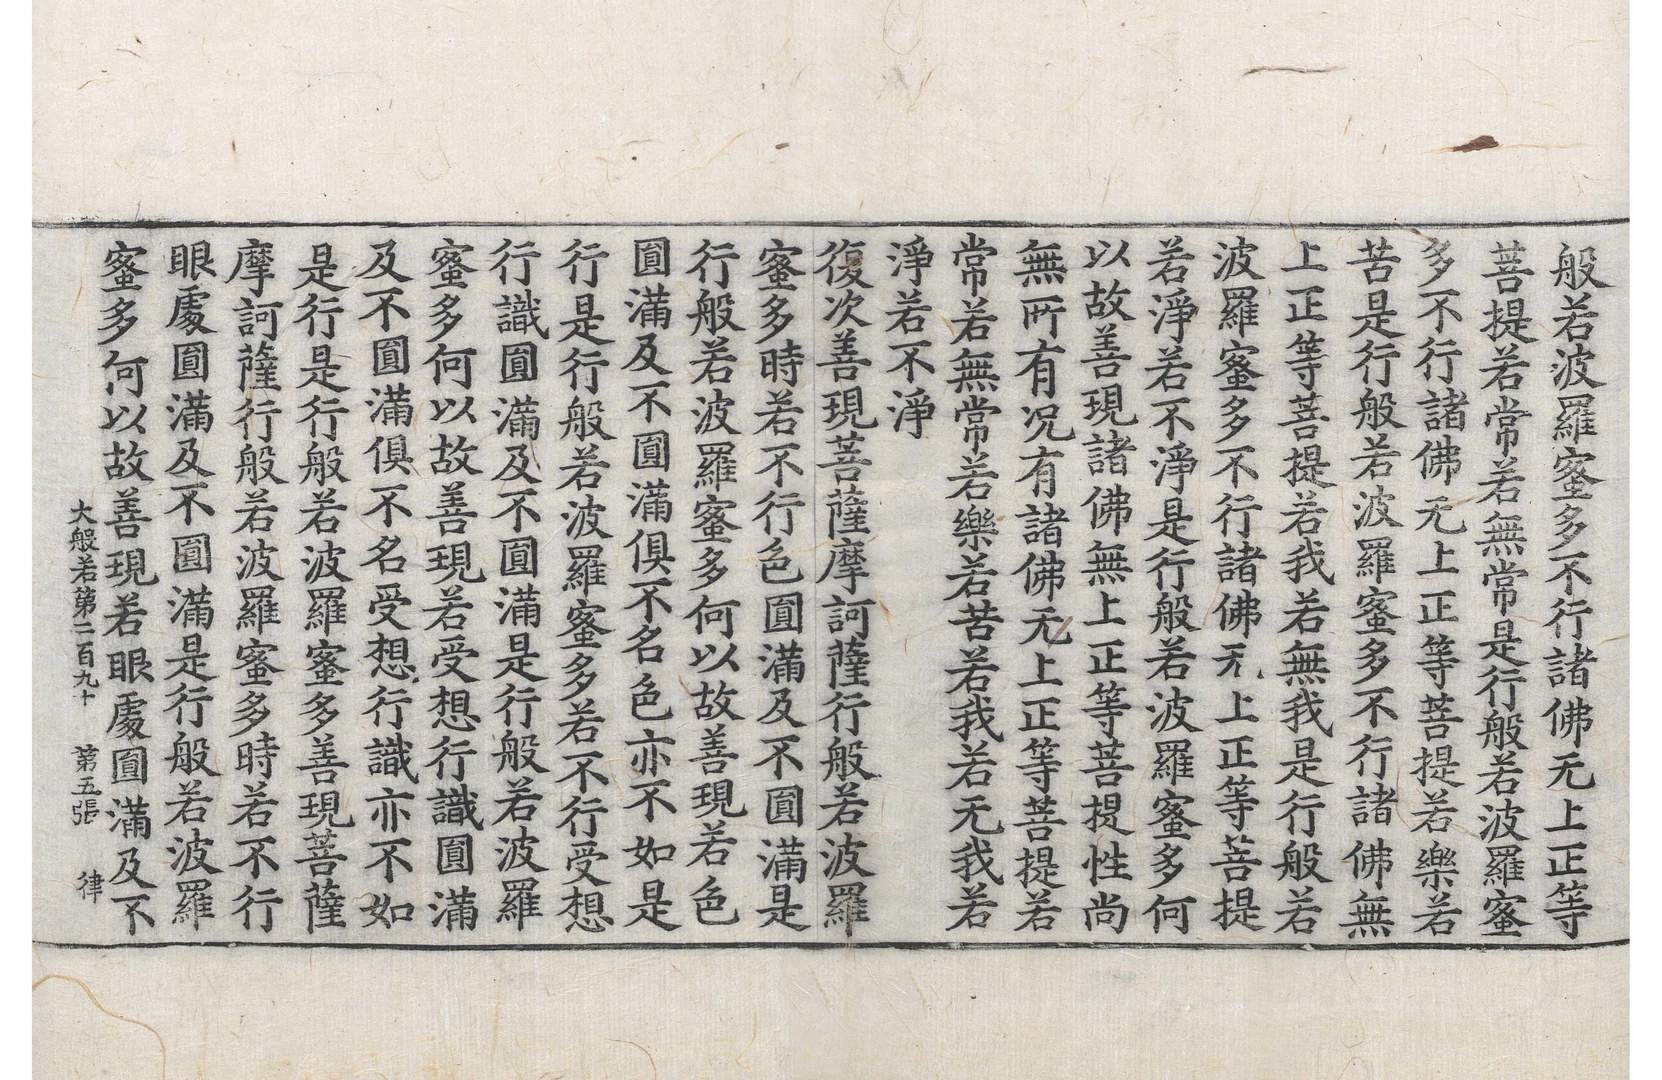 般若波羅蜜多不行諸佛无上正等
菩提若常若無常是行般若波羅蜜
多不行諸佛无上正等菩提若樂若
苦是行般若波羅蜜多不行諸佛無
上正等菩提若我若無我是行般若
波羅蜜多不行諸佛无上正等菩提
若淨若不淨是行般若波羅蜜多何
以故善現諸佛無上正等菩提性尚
無所有况有諸佛无上正等菩提若
常若無常若樂若苦若我若无我若
淨若不淨
復次善現菩薩摩訶薩行般若波羅
蜜多時若不行色圓滿及不圓滿是
行般若波羅蜜多何以故善現若色
圓滿及不圓滿俱不名色亦不如是
行是行般若波羅蜜多若不行受想
行識圓滿及不圓滿是行般若波羅
蜜多何以故善現若受想行識圓滿
及不圓滿俱不名受想行識亦不如
是行是行般若波羅蜜多善現菩薩
摩訶薩行般若波羅蜜多時若不行
眼處圓滿及不圓滿是行般若波羅
蜜多何以故善現若眼處圓滿及不
大般若第二百九十 第五張 律